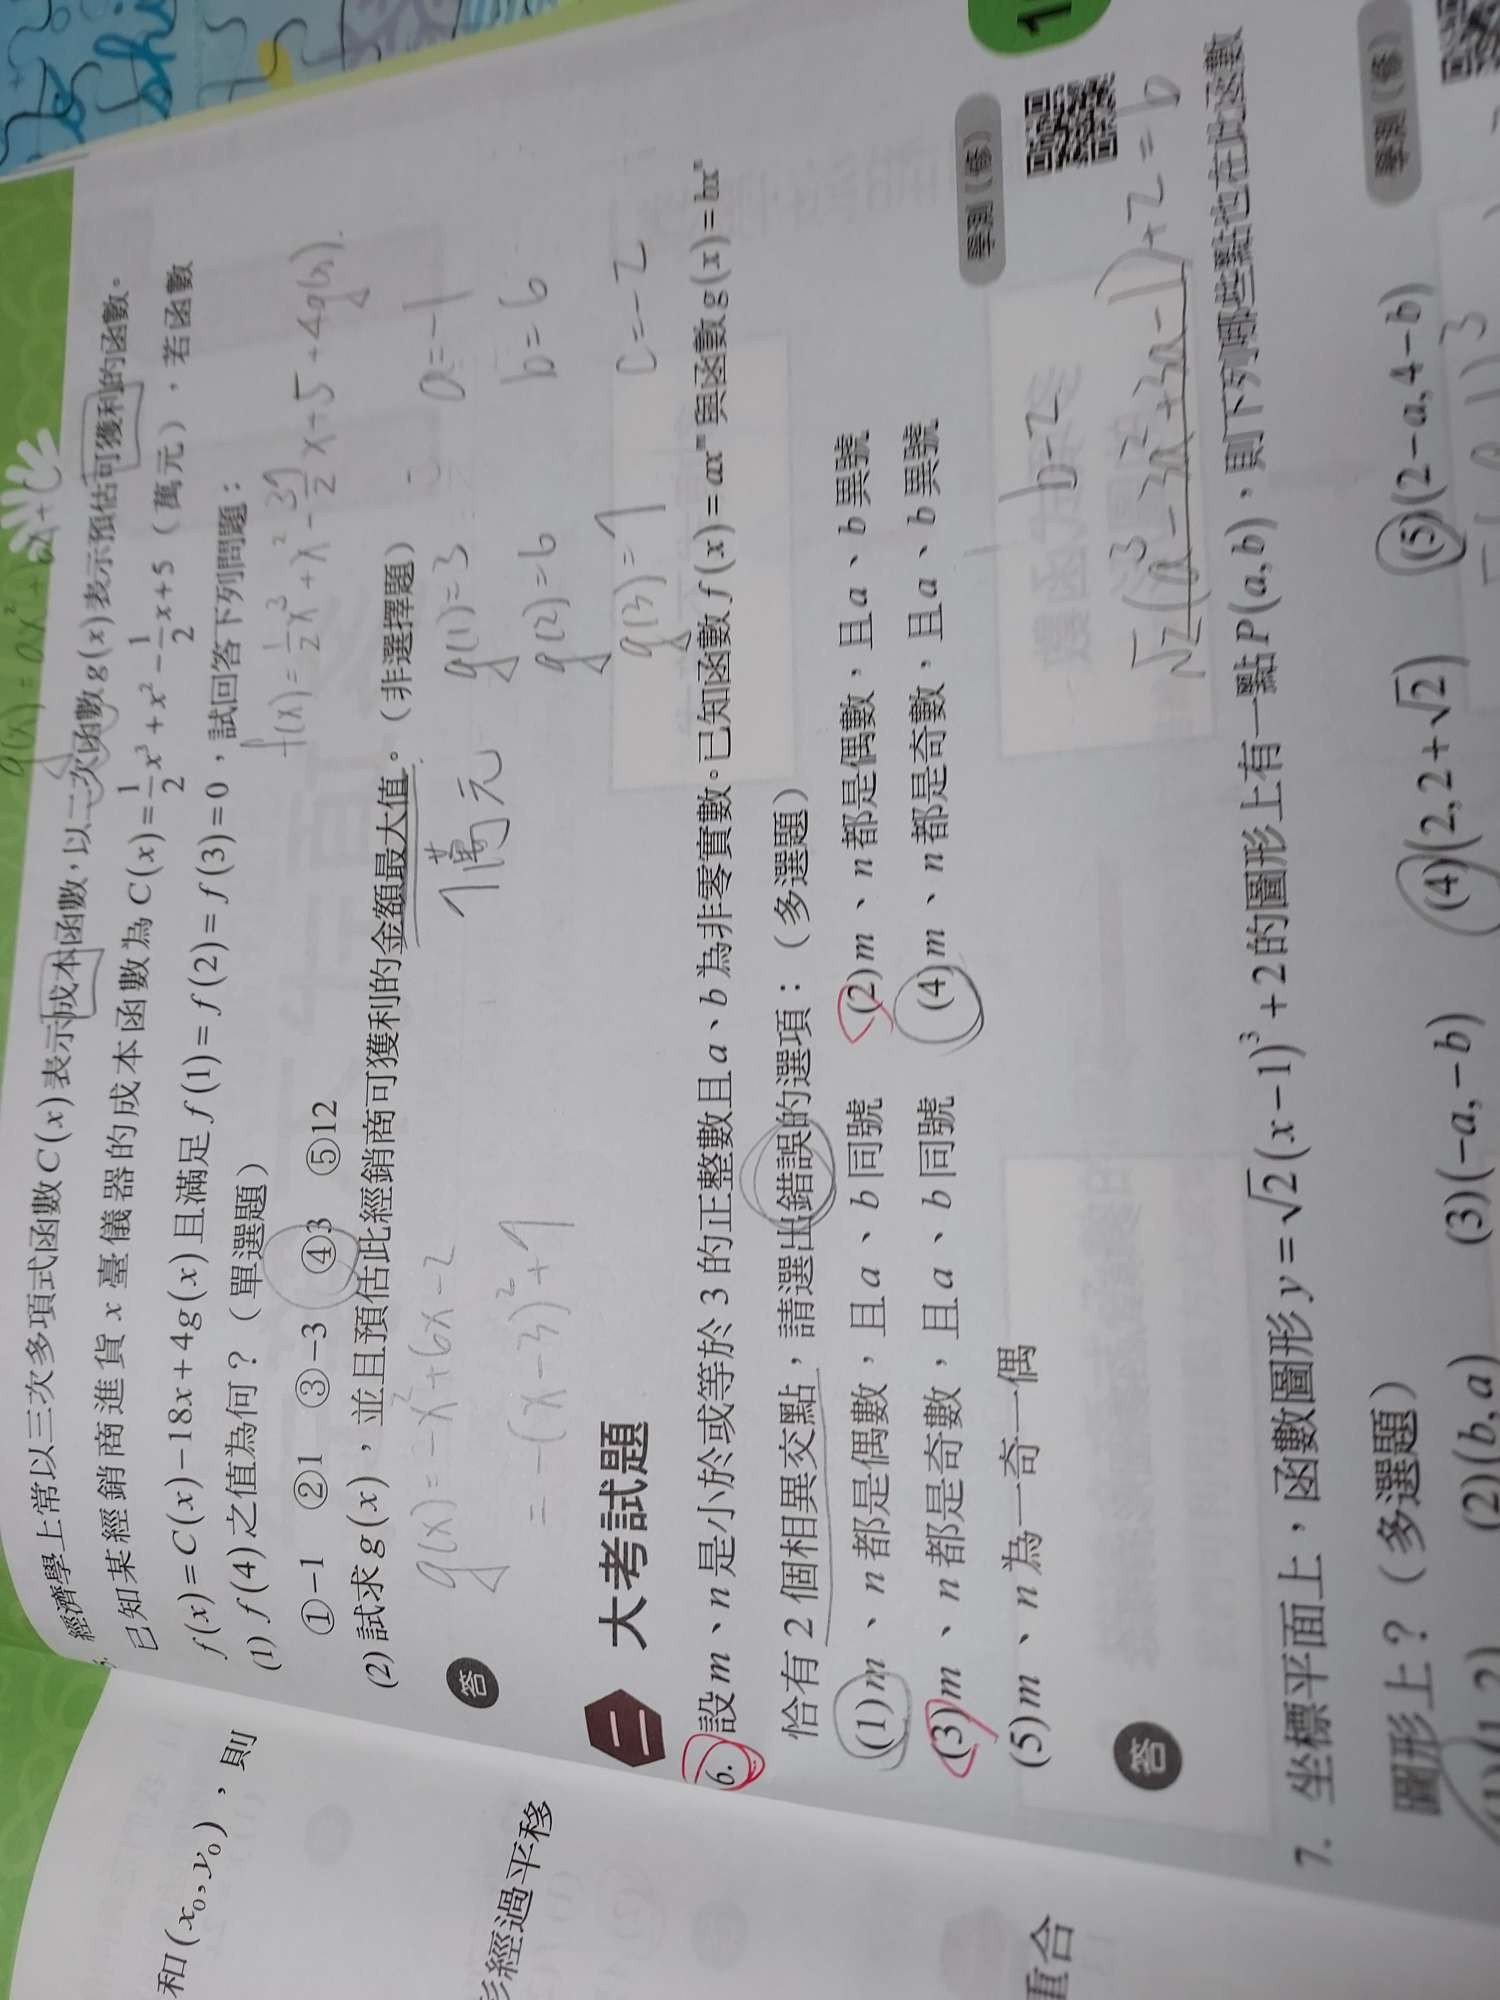 g(x) = ax² + bx + c
經濟學上常以三次多項式函數 C(x) 表示成本函數，以二次函數 g(x) 表示預估可獲利的函數。
已知某經銷商進貨 x 臺儀器的成本函數為 C(x) = 1/2 x³ + x² − 1/2 x + 5（萬元），若函數
f(x) = C(x) − 18x + 4g(x) 且滿足 f(1) = f(2) = f(3) = 0，試回答下列問題：
(1) f(4) 之值為何？（單選題）
f(x) = 1/2 x³ + x² − 37/2 x + 5 + 4g(x).
①−1 ②1 ③−3 ④3 ⑤12
(2) 試求 g(x)，並且預估此經銷商可獲利的金額最大值。（非選擇題）
答
g(x) = −x² + 6x − 2
= −(x − 3)² + 7
7萬元
g(1) = 3
a = −1
g(2) = 6
b = 6
g(3) = 7
c = −2
二 大考試題
6. 設 m、n 是小於或等於 3 的正整數且 a、b 為非零實數。已知函數 f(x) = axᵐ 與函數 g(x) = bxⁿ
恰有 2 個相異交點，請選出錯誤的選項：（多選題）
(1) m、n 都是偶數，且 a、b 同號 (2) m、n 都是偶數，且 a、b 異號
(3) m、n 都是奇數，且 a、b 同號 (4) m、n 都是奇數，且 a、b 異號
(5) m、n 為一奇一偶
學測（修）
答
b−2
√2(a³ − 3a² + 3a − 1) + 2 = b
7. 坐標平面上，函數圖形 y = √2(x − 1)³ + 2 的圖形上有一點 P(a, b)，則下列哪些點也在此函數
圖形上？（多選題）
學測（修）
(2) (b, a) (3) (−a, −b) (4) (2, 2 + √2) (5) (2 − a, 4 − b)
和 (x₀, y₀)，則
經過平移
重合